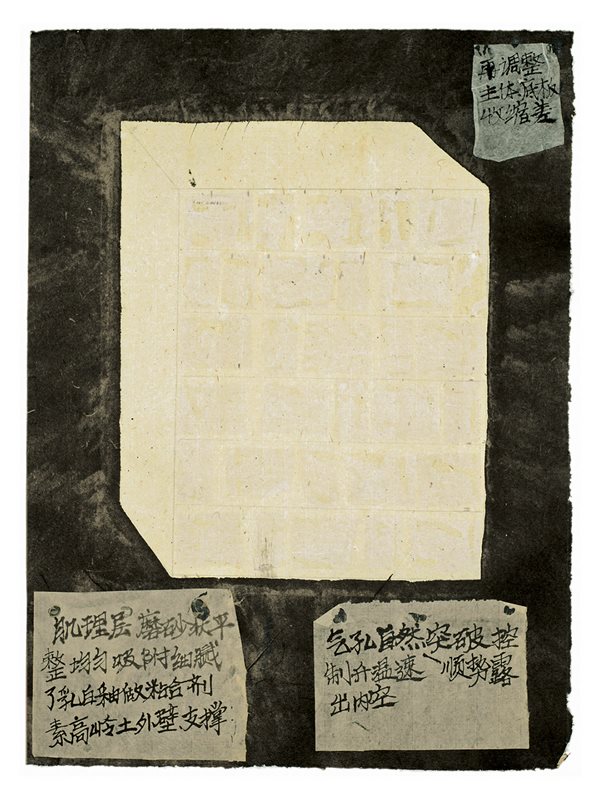 再调整
主体底板
收缩差
肌理层磨砂状平
整均匀吸附细腻
乳白釉做粘合剂
素高岭土外壁支撑
气孔自然突破控
制升温速顺势露
出内空